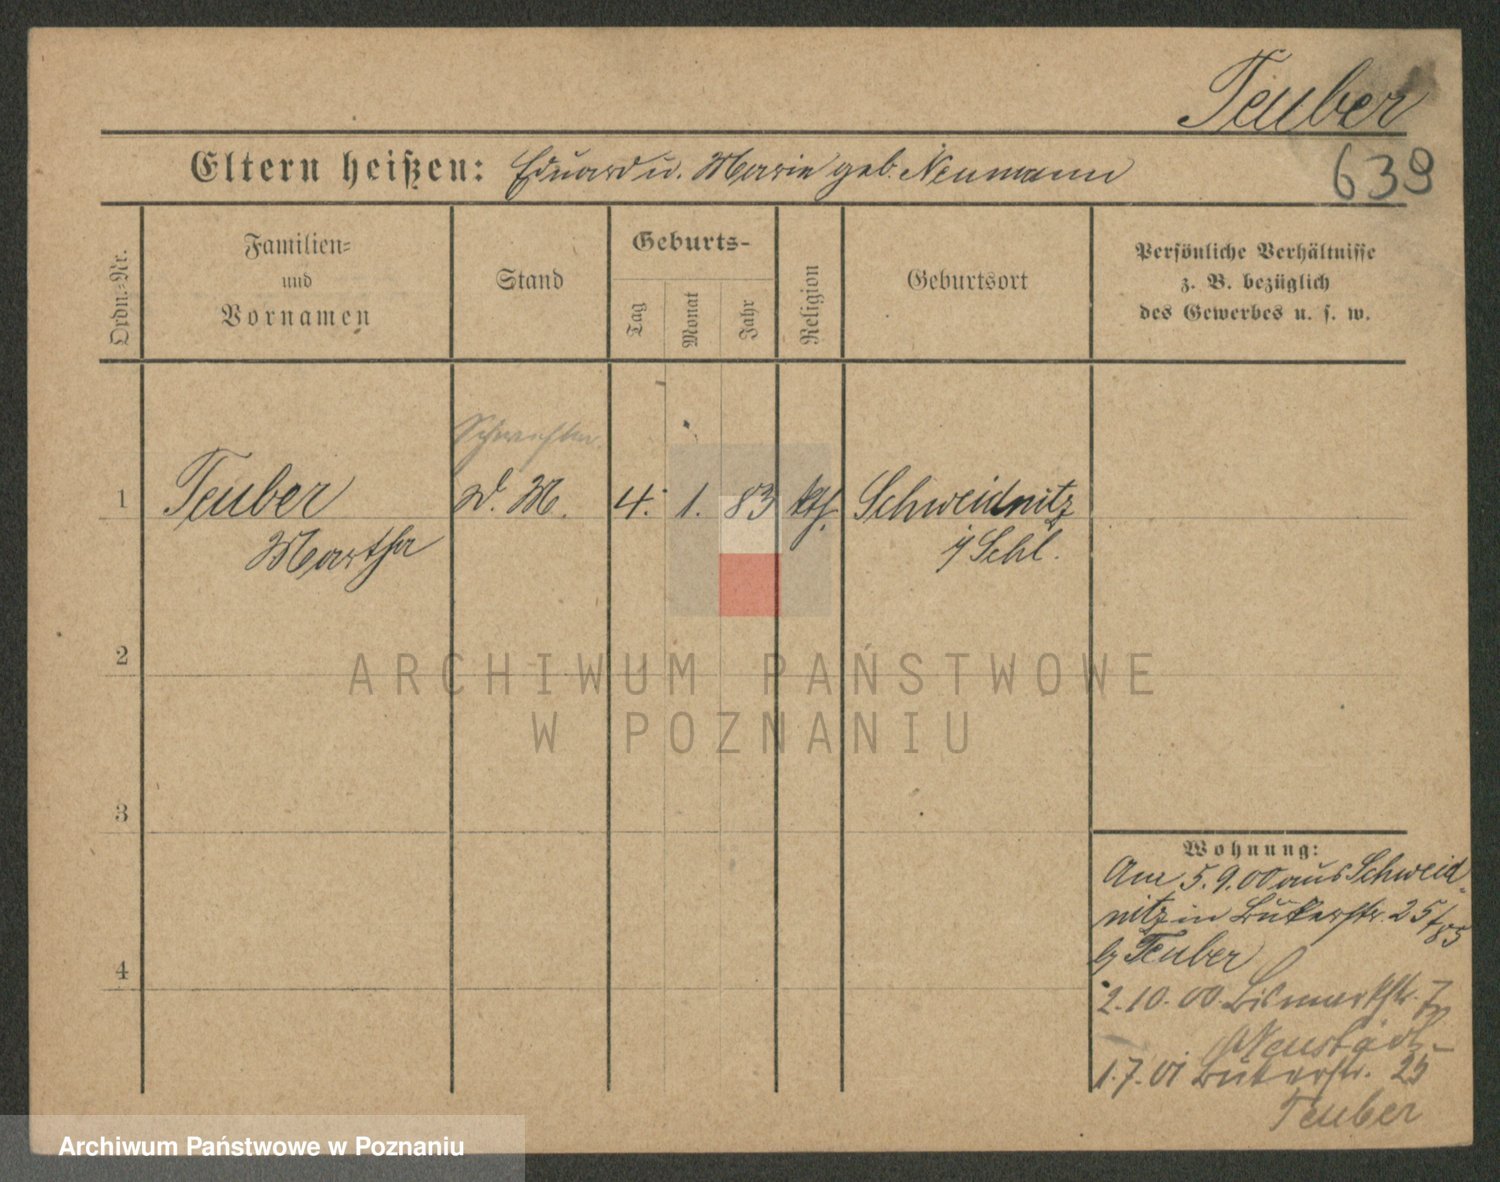 Teuber
Eltern heißen: Eduard u. Marie geb. Neumann
639
Ordn.-Nr.
Familien-
und
Vornamen
Stand
Geburts-
Tag
Monat
Jahr
Religion
Geburtsort
Persönliche Verhältnisse
z. B. bezüglich
des Gewerbes u. s. w.
1
Teuber
Martha
D. M.
4. 1. 83
kth.
Schweidnitz
i/ Schl.
2
3
4
Wohnung:
Am 5. 9. 00 aus Schweid-
nitz in Bukerstr. 25/85
b/ Teuber
2. 10. 00. Bismarkstr. 7
Neustädt-
1. 7. 01 Bukerstr. 25
Teuber
ARCHIWUM PAŃSTWOWE
W POZNANIU
Archiwum Państwowe w Poznaniu